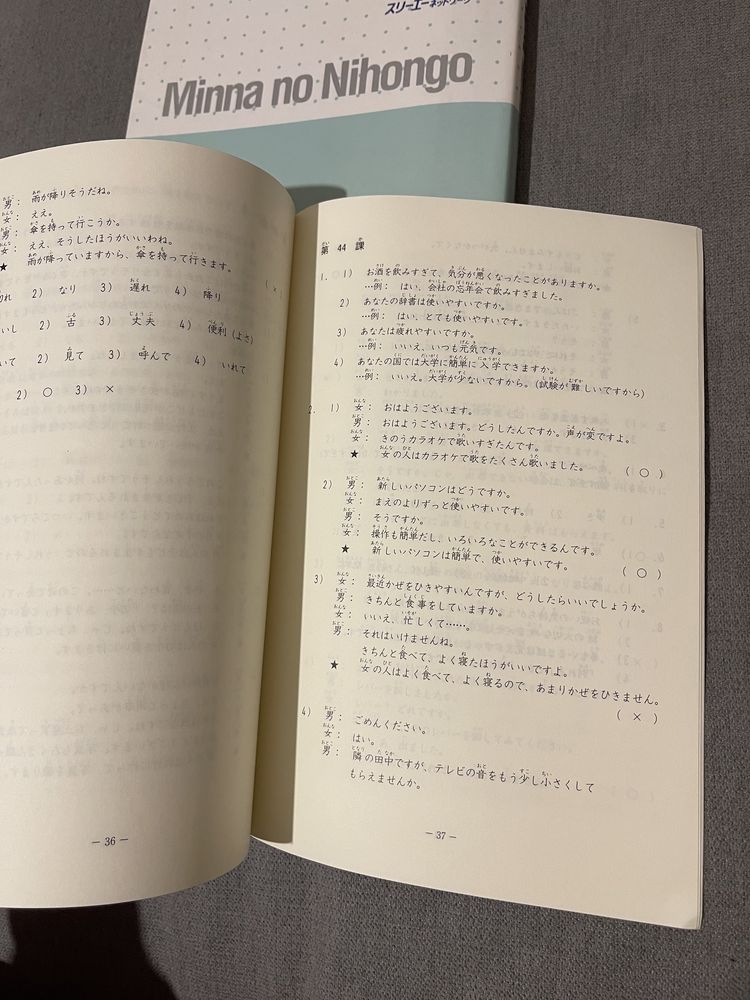 スリーエーネットワーク
Minna no Nihongo
男： 雨が降りそうだね。
女： ええ。
男： 傘を持って行こうか。
女： ええ、そうしたほうがいいわね。
★ 雨が降っていますから、傘を持って行きます。
( × )
2) なり 3) 遅れ 4) 降り
2) 古 3) 丈夫 4) 便利（よさ）
2) 見て 3) 呼んで 4) いれて
2) ○ 3) ×
— 36 —
第 44 課
1. 1) お酒を飲みすぎて、気分が悪くなったことがありますか。
…例： はい、会社の忘年会で飲みすぎました。
2) あなたの辞書は使いやすいですか。
…例： はい、とても使いやすいです。
3) あなたは疲れやすいですか。
…例： いいえ、いつも元気です。
4) あなたの国では大学に簡単に入学できますか。
…例： いいえ。大学が少ないですから。（試験が難しいですから）
2. 1) 女： おはようございます。
男： おはようございます。どうしたんですか。声が変ですよ。
女： きのうカラオケで歌いすぎたんです。
★ 女の人はカラオケで歌をたくさん歌いました。 ( ○ )
2) 男： 新しいパソコンはどうですか。
女： まえのよりずっと使いやすいです。
男： そうですか。
女： 操作も簡単だし、いろいろなことができるんです。
★ 新しいパソコンは簡単で、使いやすいです。 ( ○ )
3) 女： 最近かぜをひきやすいんですが、どうしたらいいでしょうか。
男： きちんと食事をしていますか。
女： いいえ、忙しくて……。
男： それはいけませんね。
きちんと食べて、よく寝たほうがいいですよ。
★ 女の人はよく食べて、よく寝るので、あまりかぜをひきません。
( × )
4) 男： ごめんください。
女： はい。
男： 隣の田中ですが、テレビの音をもう少し小さくして
もらえませんか。
— 37 —